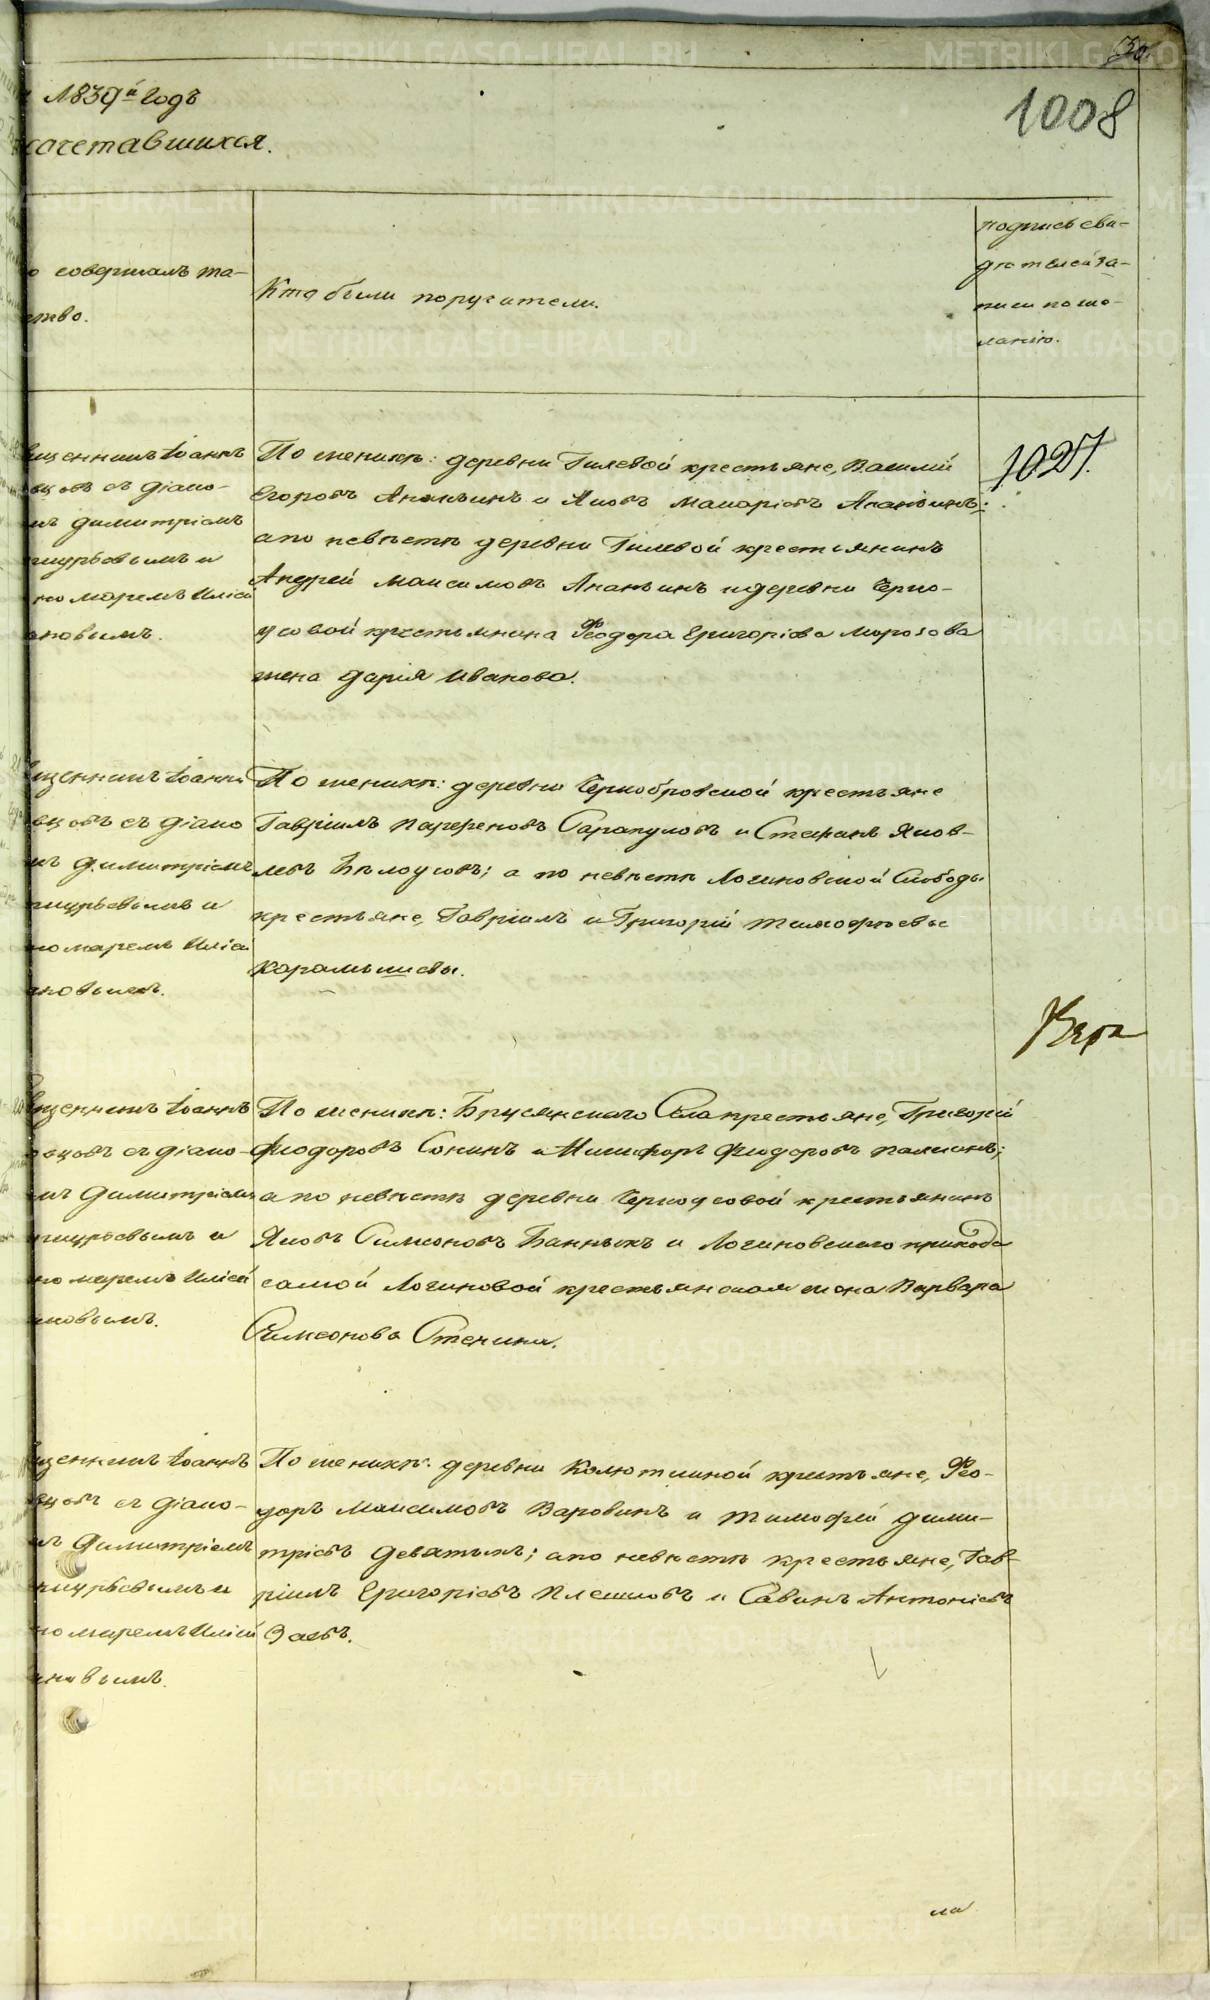 1839й годъ
1008
сочетавшихся.
совершалъ та-
ство.
Кто были поручители.
подпись сви-
дѣтелей за-
писи по же-
ланію.
щенникъ Іоаннъ
съ діако-
Димитріемъ
и
номаремъ Иліей
новымъ.
По женихѣ: деревни Гилевой крестьяне, Василій
Егоровъ Ананьинъ и Яковъ Макаріевъ Ананьинъ;
а по невѣстѣ деревни Гилевой крестьянинъ
Андрей Максимовъ Ананьинъ и деревни Черно-
усовой крестьянина Феодора Григоріева Морозова
жена Дарія Иванова.
1027.
щенникъ Іоаннъ
съ діако
Димитріемъ
и
номаремъ Иліей
новымъ.
По женихѣ: деревни Чернобровской крестьяне
Гавріилъ Парфеновъ Сарапуловъ и Стефанъ Яков-
левъ Бѣлоусовъ; а по невѣстѣ Логиновской Слободы
крестьяне, Гавріилъ и Григорій Тимофѣевы
Карамышевы.
щенникъ Іоаннъ
съ діако-
Димитріемъ
и
номаремъ Иліей
новымъ.
По женихѣ: Брусянскаго Села крестьяне, Григорій
Феодоровъ Сонинъ и Никифоръ Феодоровъ Палкинъ;
а по невѣстѣ деревни Черноусовой крестьянинъ
Яковъ Симеоновъ Банныхъ и Логиновскаго прихода
самой Логиновой крестьянская жена Варвара
Симеонова Стенина.
щенникъ Іоаннъ
съ діако-
Димитріемъ
и
номаремъ Иліей
новымъ.
По женихѣ: деревни Колюткиной крестьяне, Фео-
доръ Максимовъ Варовинъ и Тимофей Дими-
тріевъ Девятыхъ; а по невѣстѣ крестьяне, Гав-
ріилъ Григоріевъ Плешковъ и Савинъ Антоніевъ
Заевъ.
METRIKI.GASO-URAL.RU